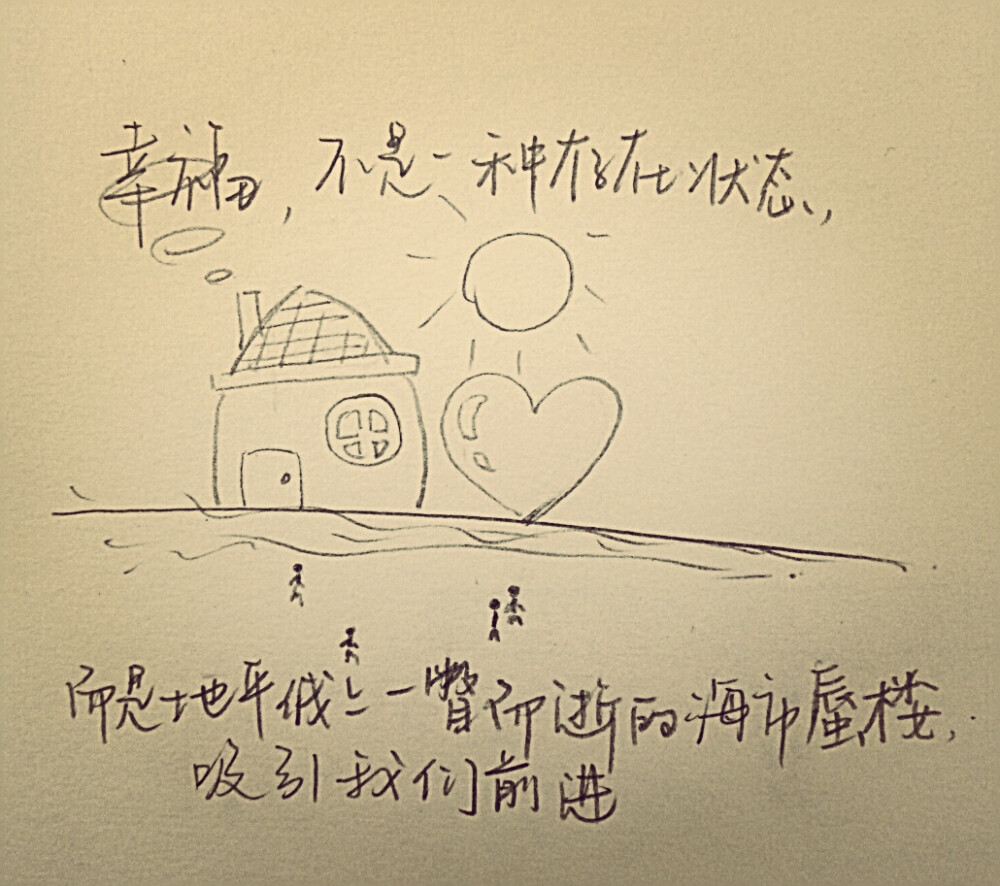 幸福，不是一种存在状态，
而是地平线上一瞥而逝的海市蜃楼，
吸引我们前进